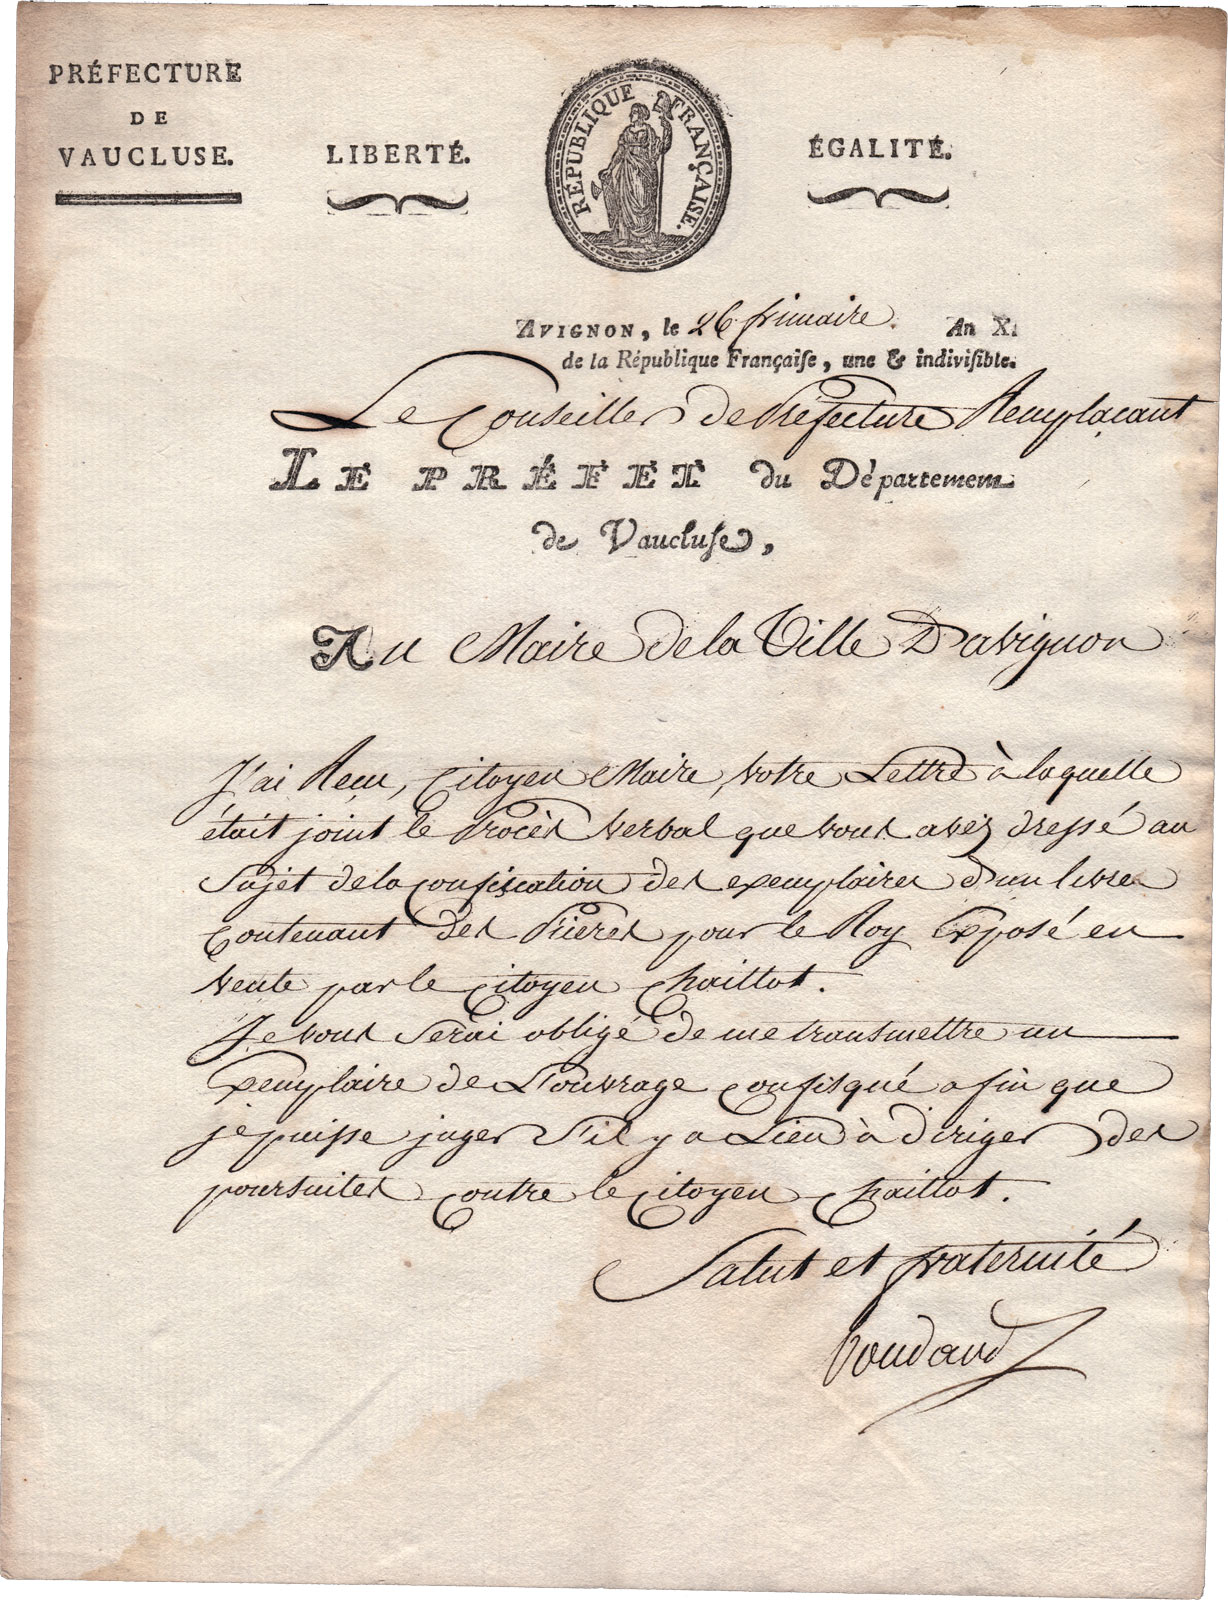 PRÉFECTURE
DE
VAUCLUSE.
LIBERTÉ.
RÉPUBLIQUE FRANÇAISE.
ÉGALITÉ.
AVIGNON, le 26 frimaire. An X.
de la République Françaiſe, une & indiviſible.
Le Conseiller de Préfecture Remplaçant
LE PRÉFET du Département
de Vaucluſe,
Au Maire de la Ville D'avignon
J'ai Reçu, Citoyen Maire, votre Lettre à laquelle
était joint le Procès verbal que vous avez dressé au
Sujet de la confiscation des exemplaires d'un livre
Contenant des Prieres pour le Roy Exposé en
vente par le Citoyen Chaillot.
Je vous serai obligé de me transmettre un
Exemplaire de L'ouvrage confisqué afin que
je puisse juger S'il y a Lieu à diriger des
poursuites contre le Citoyen Chaillot.
Salut et fraternité